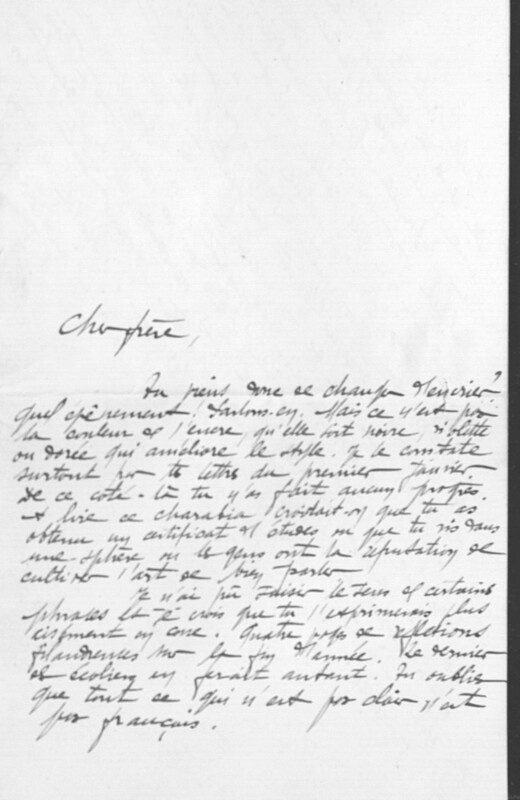 Cher frère,
Tu viens donc de changer d'encrier?
Quel évènement! Parlons-en. Mais ce n'est pas
la couleur de l'encre, qu'elle soit noire, violette
ou dorée qui améliore le style. Je le constate
surtout par ta lettre du premier Janvier.
De ce côté-là tu n'as fait aucun progrès.
A lire ce charabia croirait-on que tu as
obtenu un certificat d'études ou que tu vis dans
une sphère où les gens ont la réputation de
cultiver l'art de bien parler
Je n'ai pu saisir le sens de certaines
phrases et je crois que tu t'exprimerais plus
aisément en . Quatre pages de réflexions
filandreuses sur la fin d'année. Le dernier
des écoliers en ferait autant. Tu oublies
que tout ce qui n'est pas clair n'est
pas français.